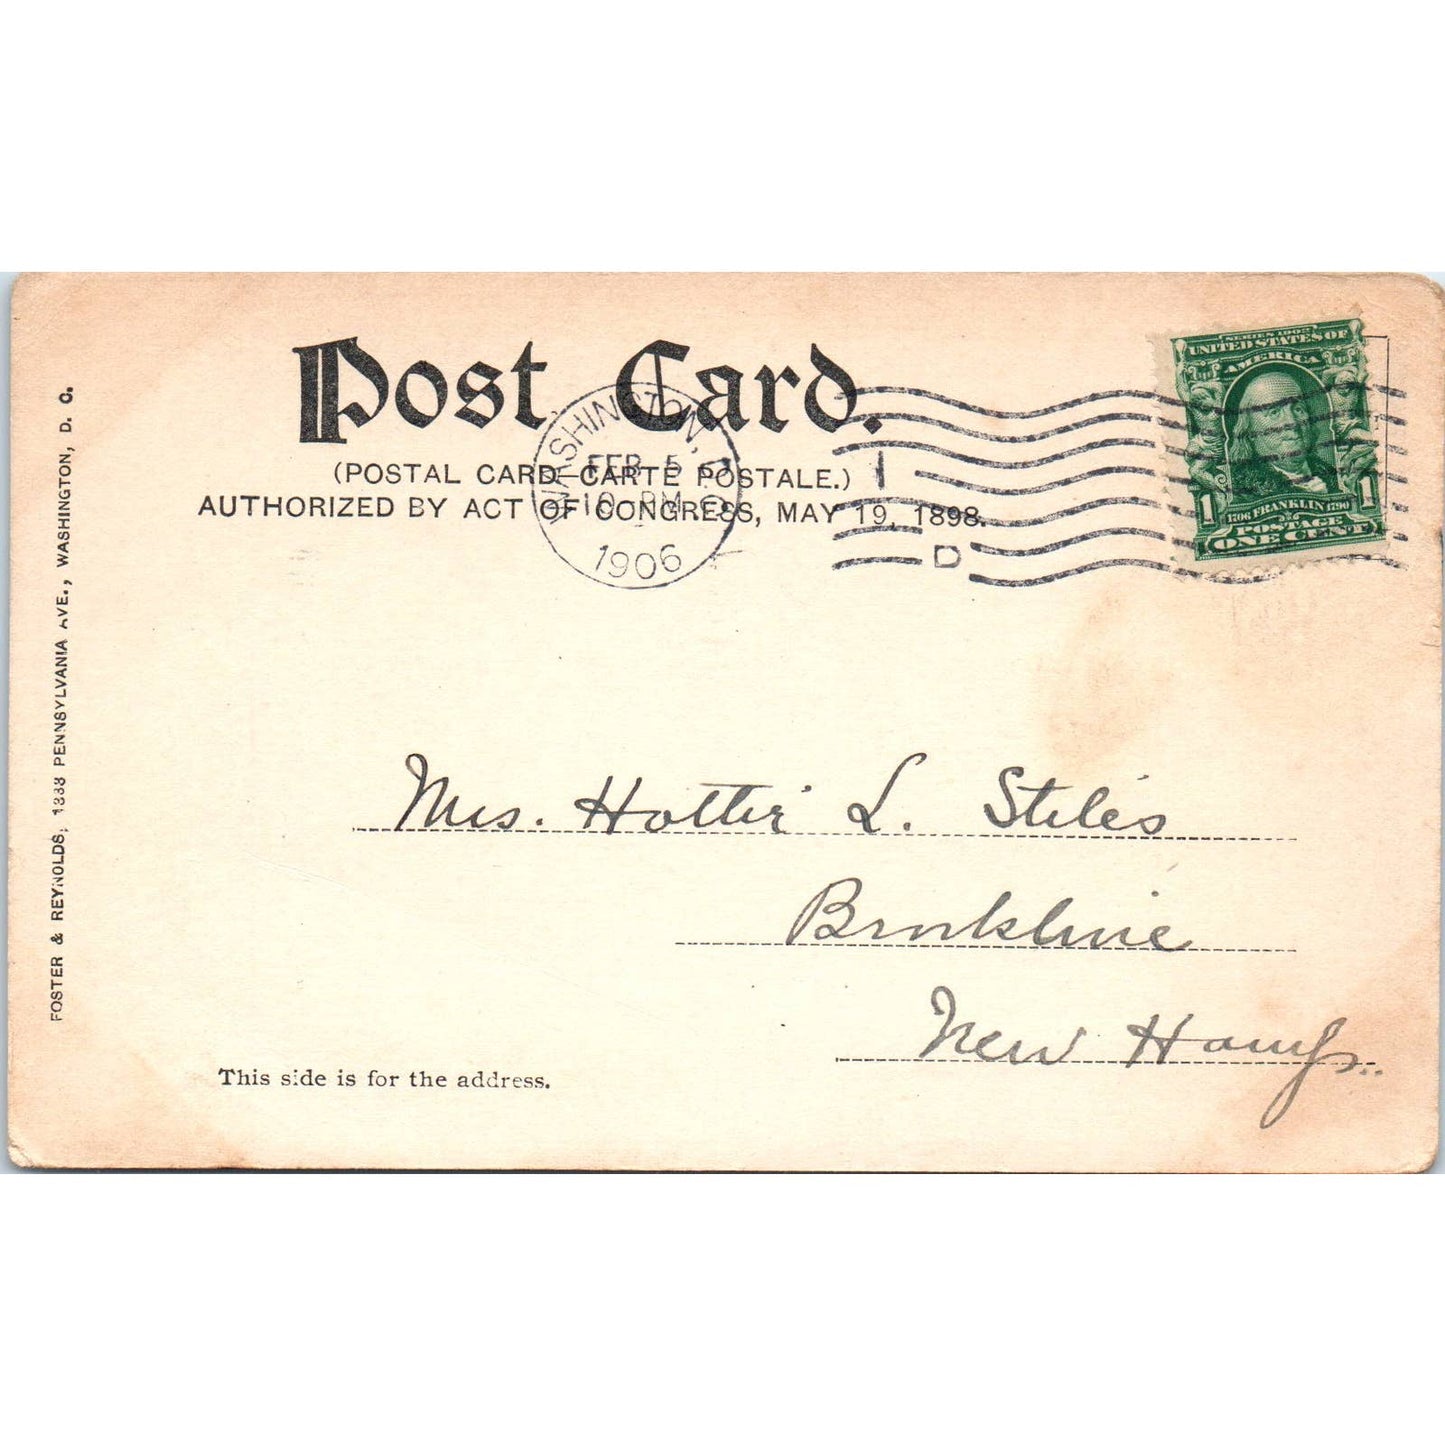 Post Card.
(POSTAL CARD-CARTE POSTALE.)
AUTHORIZED BY ACT OF CONGRESS, MAY 19, 1898.
WASHINGTON, D.C.
FEB 5
10 PM
1906
1
D
SERIES 1902
UNITED STATES OF
AMERICA
1706 FRANKLIN 1790
1 POSTAGE 1
ONE CENT
Mrs. Hattie L. Stiles
Brookline
New Hamps..
This side is for the address.
FOSTER & REYNOLDS, 1333 PENNSYLVANIA AVE., WASHINGTON, D. C.